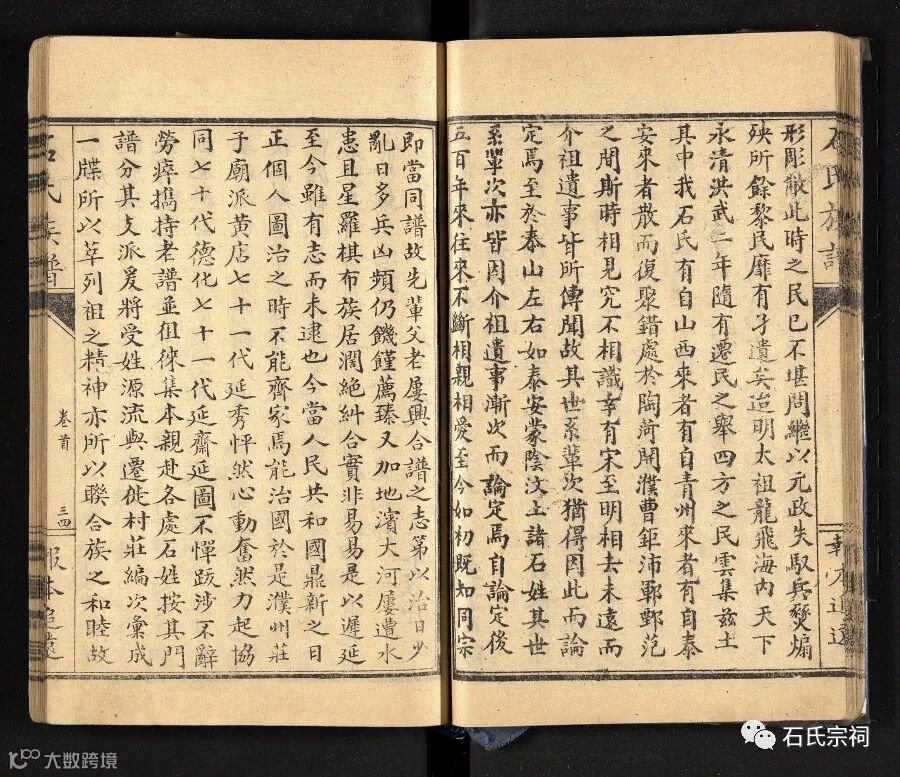 形彫敝此時之民已不堪問繼以元政失馭兵燹煽
殃所餘黎民靡有孑遺矣迨明太祖龍飛海內天下
永清洪武二年隨有遷民之舉四方之民雲集茲土
其中我石氏有自山西來者有自青州來者有自泰
安來者散而復聚錯處於陶菏開濮曹鉅沛鄆鄄范
之間斯時相見究不相識幸有宋至明相去未遠而
介祖遺事皆所傳聞故其世系輩次猶得因此而論
定焉至於泰山左右如泰安蒙陰汶上諸石姓其世
系輩次亦皆因介祖遺事漸次而論定焉自論定後
五百年來往來不斷相親相愛至今如初既知同宗
石氏族譜
報本追遠
即當同譜故先輩父老屢興合譜之志第以治日少
亂日多兵凶頻仍饑饉薦臻又加地濱大河屢遭水
患且星羅棋布族居濶絶糾合實非易易是以遲延
至今雖有志而未逮也今當人民共和國鼎新之日
正個人圖治之時不能齊家焉能治國於是濮州莊
子廟派黃店七十一代延秀怦然心動奮然力起協
同七十代德化七十一代延齋延圖不憚跋涉不辭
勞瘁携持老譜並徂徠集本親赴各處石姓按其門
譜分其支派爰將受姓源流與遷徙村莊編次彙成
一牒所以萃列祖之精神亦所以聯合族之和睦故
石氏族譜
卷首
三四
報本追遠
石氏宗祠
大数跨境